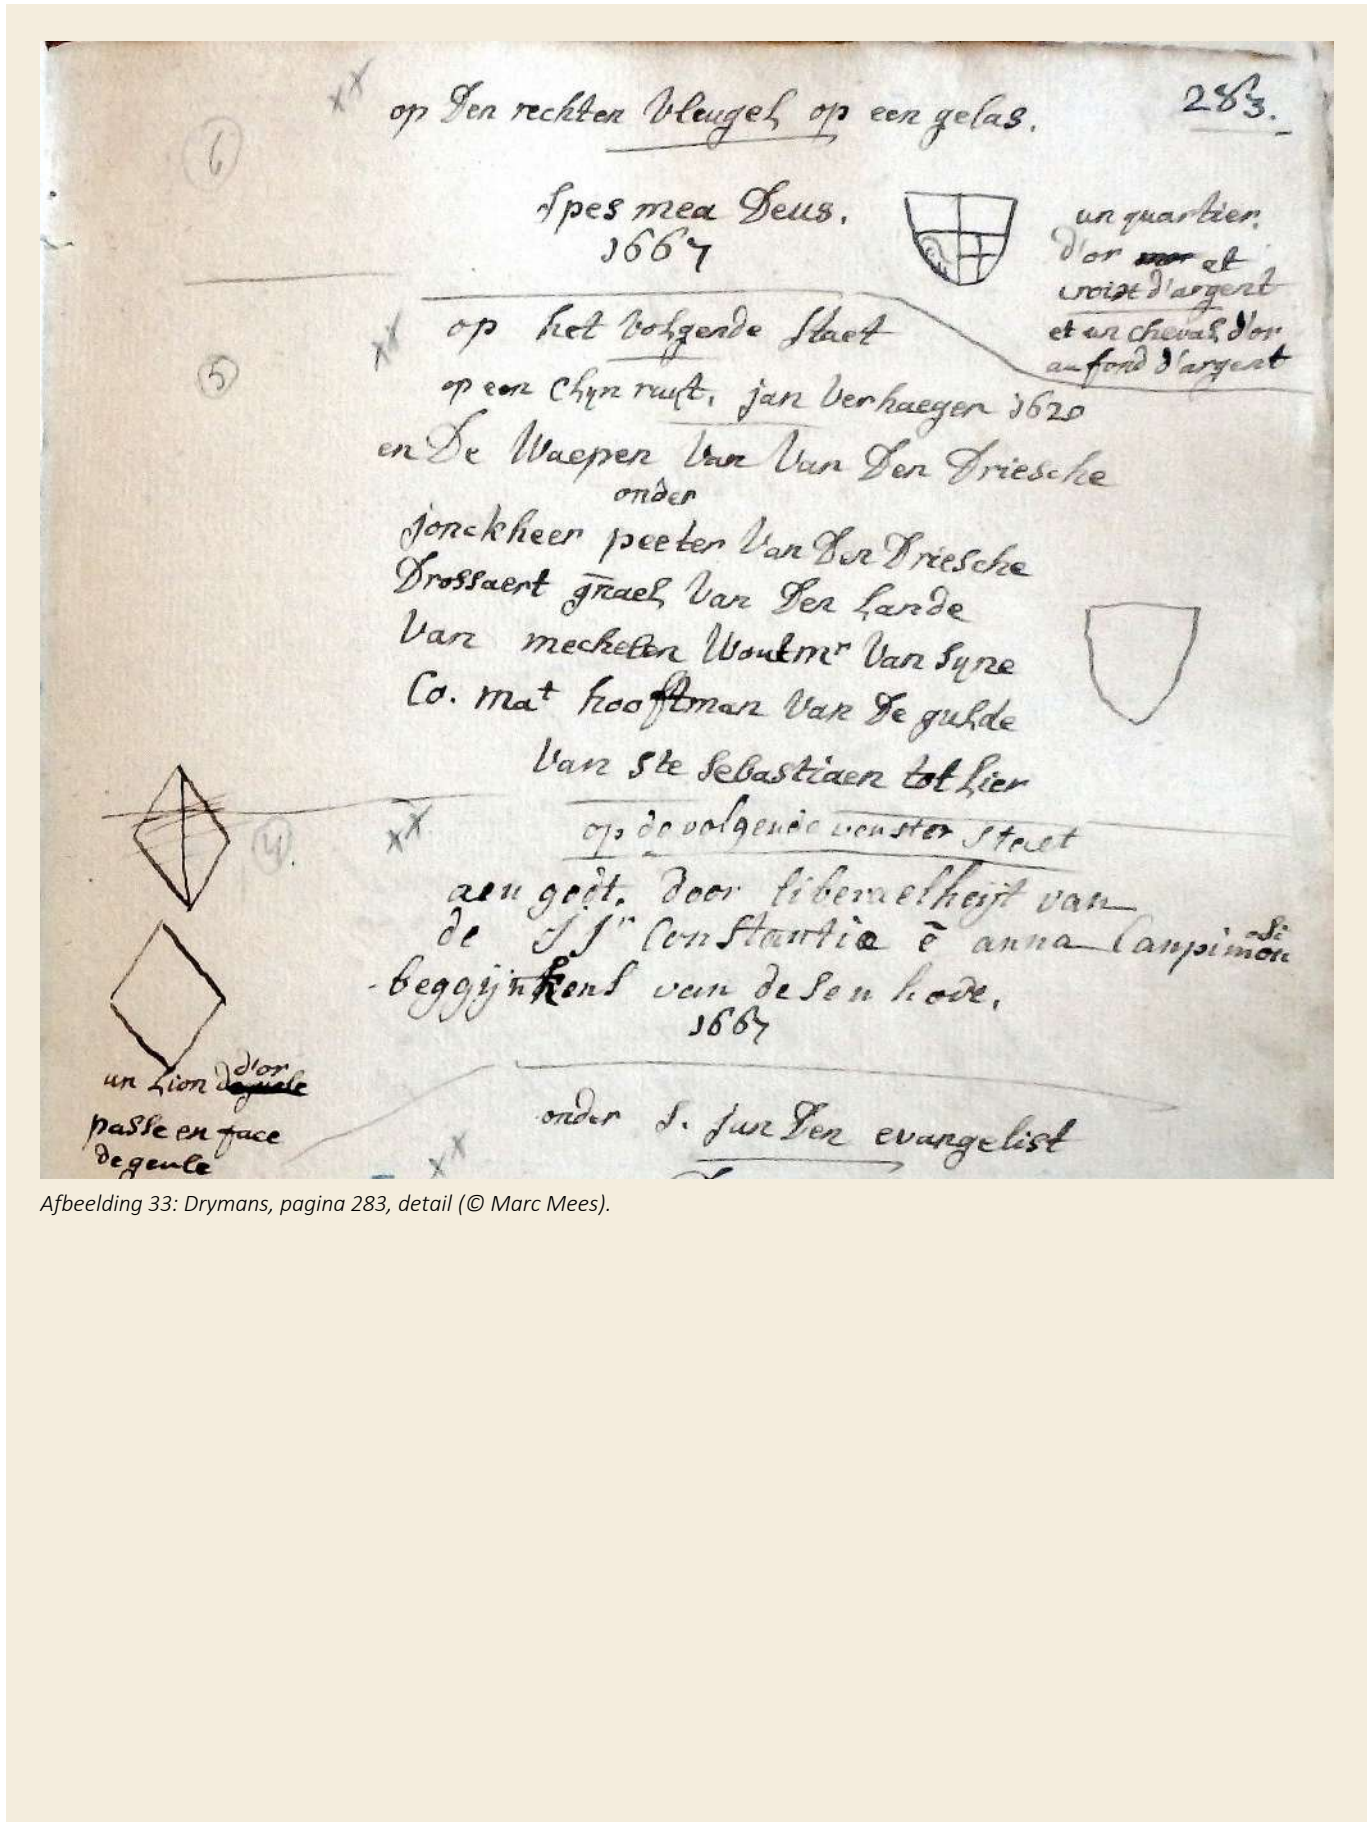 op Den rechten Vleugel op een gelas.
283.
6
Spes mea Deus.
1667
un quartier.
d'or et
croix d'argent
et un cheval d'or
au fond d'argent
op het volgende staet
5
op een Clyn ruyt, jan Verhaegen 1620
en De Waepen Van Van Den Driesche
onder
jonckheer peeter Van Den Driesche
Drossaert gñael Van Den Lande
Van mechelen Woutmr Van Syne
Co. mat hooftman Van De gulde
Van Ste Sebastiaen tot Lier
4
op de volgende venster staet
aen godt. door liberaelheyt van
de JJrn Constantia ē anna Campi
beggijnkens van desen hove,
1667
un Lion d'or
passe en face
de geule
onder S. jan Den evangelist
Afbeelding 33: Drymans, pagina 283, detail (© Marc Mees).